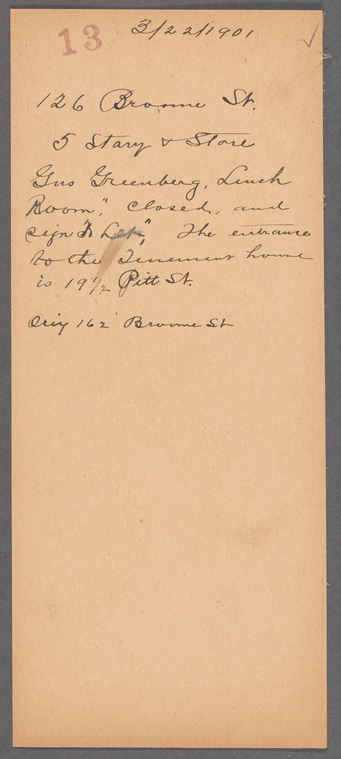 13 3/22/1901
126 Broome St.
5 Story & Store
Gus Greenberg, Lunch
Room", closed, and
sign "To Let", The entrance
to the Tenement house
is 19½ Pitt St.
Orig 162 Broome St